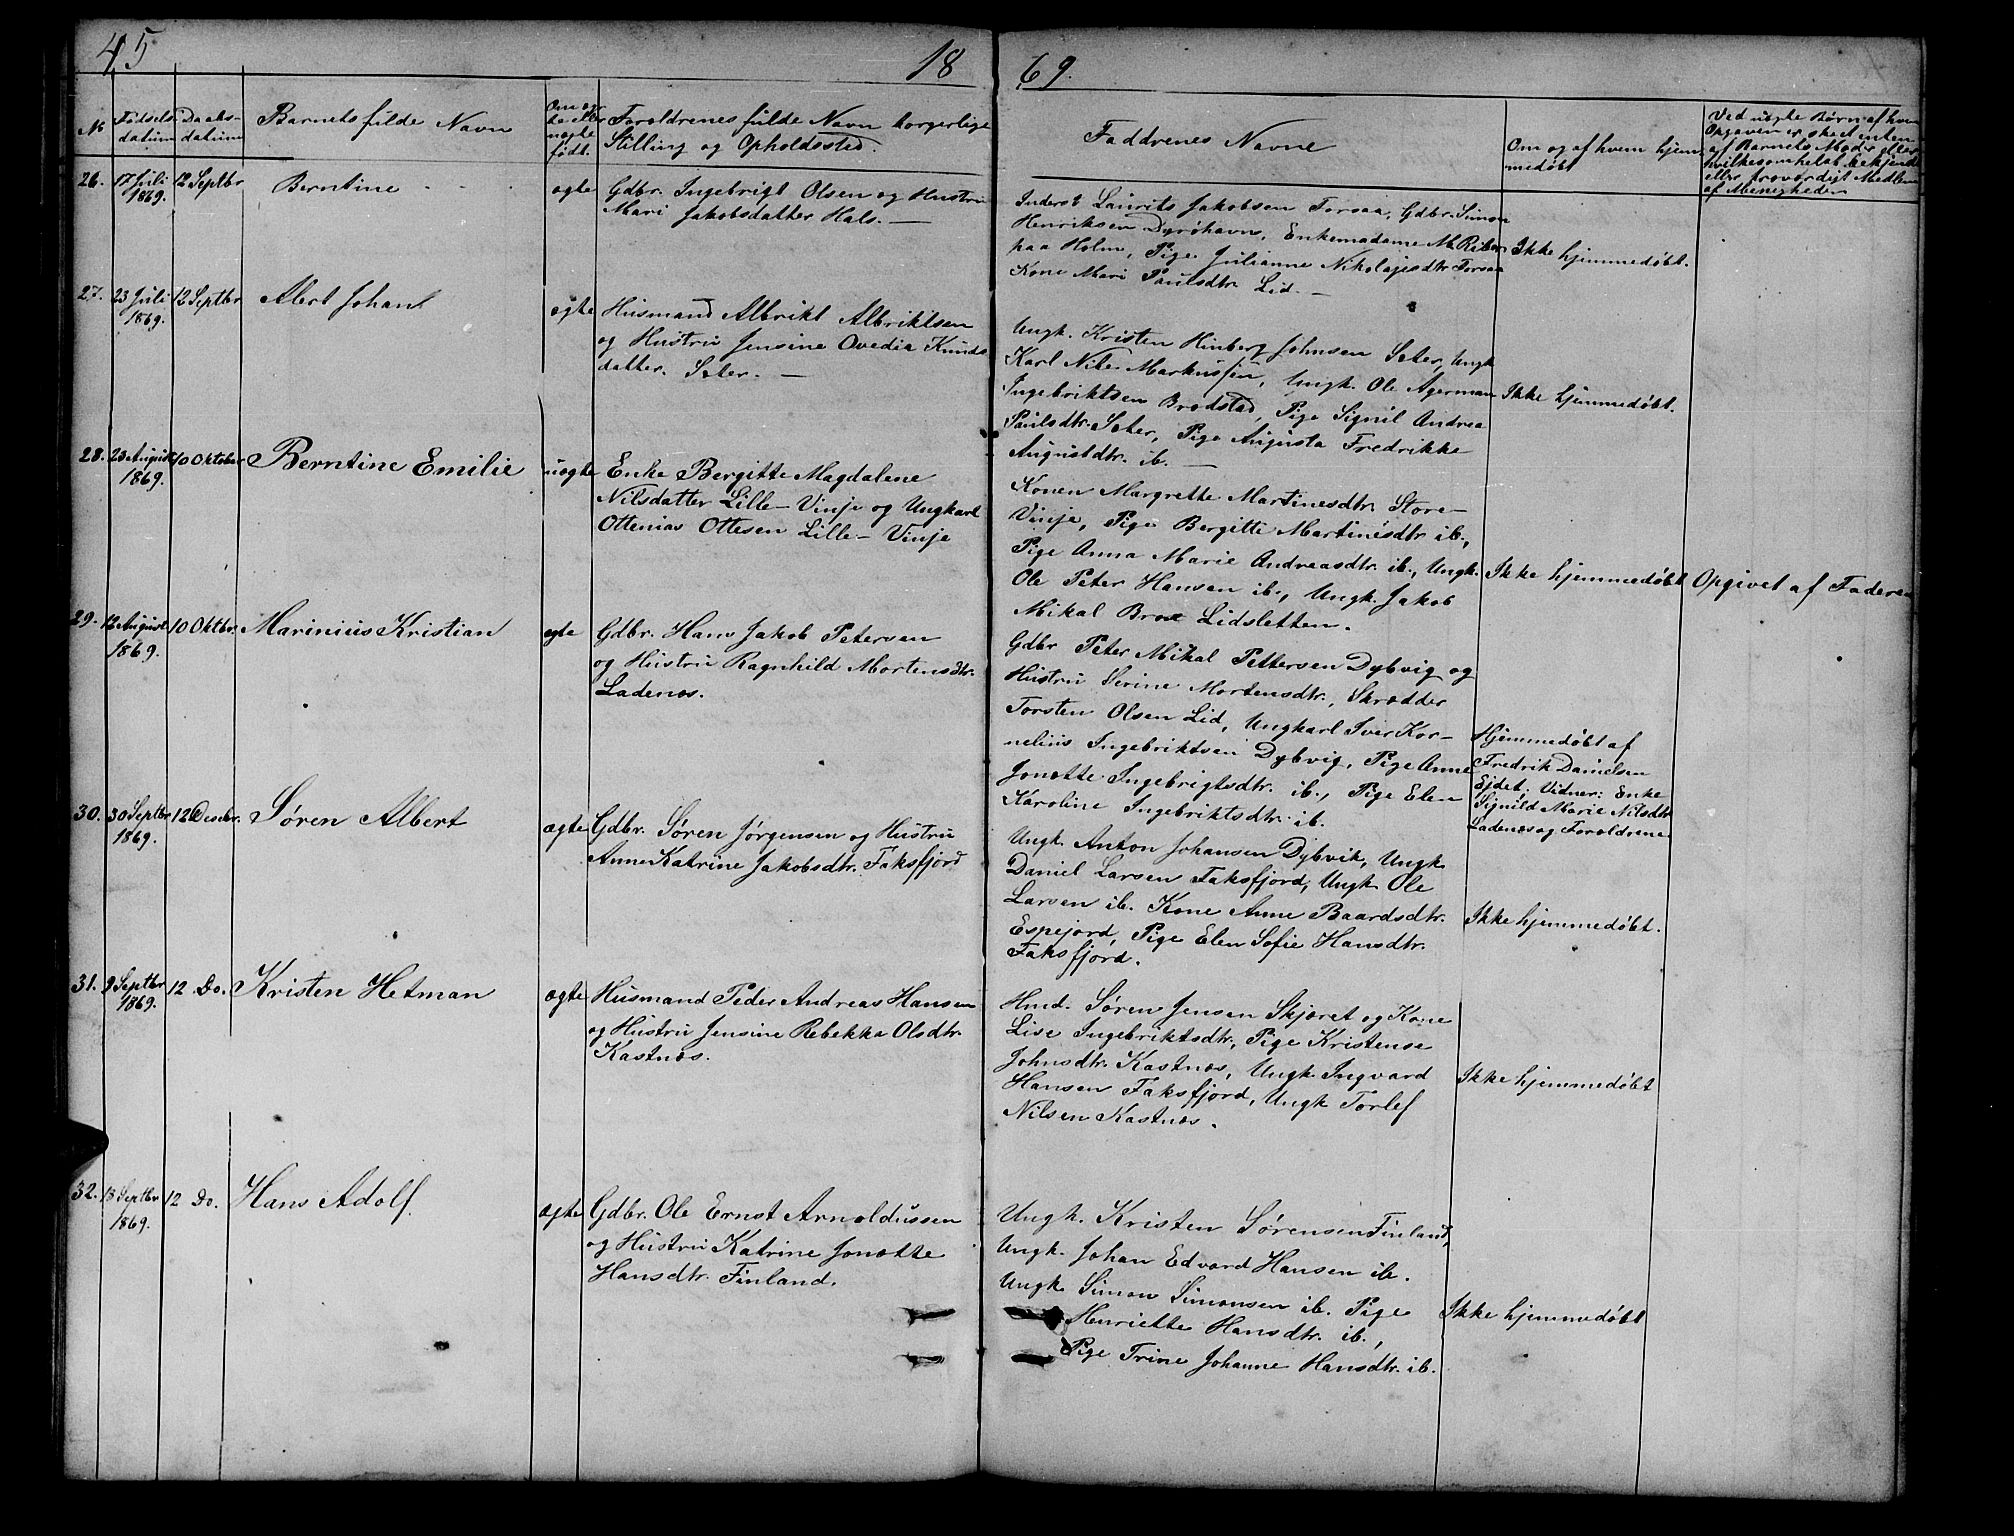 45
18 69.
No
Fødsels-
datum
Daabs-
datum
Barnets fulde Navn
Om æg-
te eller
uægte
født.
Forældrenes fulde Navn borgerlige
Stilling og Opholdssted.
Faddrenes Navne
Om og af hvem hjem-
medøbt
Ved uægte Børn af hvem
Opgaven er sked enten
af Barnets Moder eller
hvilkesomhelst bekjendt
eller troværdigt Medlem
af Menigheden
26. 17 Juli 12 Septbr Berntine
1869.
ægte
Gdbr. Ingebrigt Olsen og Hustru
Mari Jakobsdatter Hals. —
Inderst Laurits Jakobsen Torsaa, Gdbr. Simon
Henriksen Dyrøhavn, Enkemadame M. Reiber
paa Holm, Pige Julianne Nikolajsdtr Torsaa
Kone Mari Paulsdtr. Lid. —
Ikke hjemmedøbt.
27. 23 Juli 12 Septbr Albert Johan
1869.
ægte
Husmand Albrikt Albriktsen
og Hustru Jensine Ovedia Knuds
datter. Sæter. —
Ungk. Kristen Hinberg Johnsen Sæter, Ungk
Karl Nils Markussen, Ungk. Ole Agerman
Ingebriktsen Brødstad, Pige Signil Andrea
Paulsdtr. Sæter, Pige Augusta Fredrikke
Augustdtr. ib. —
Ikke hjemmedøbt.
28. 23 August 10 Oktober Berntine Emilie
1869.
uægte
Enke Bergitte Magdalene
Nilsdatter Lille-Vinje og Ungkarl
Ottenias Ottesen Lille-Vinje
Konen Margrette Martinesdtr Store-
Vinje, Pige Bergitte Martinesdtr ib.,
Pige Anna Marie Andreasdtr. ib., Ungk.
Ole Peter Hansen ib., Ungk. Jakob
Mikal Brox Lidsletten.
Ikke hjemmedøbt
Opgivet af Faderen
29. 12 August 10 Oktbr. Marinius Kristian
1869.
ægte
Gdbr. Hans Jakob Petersen
og Hustru Ragnhild Mortensdtr.
Ladenæs.
Gdbr Peter Mikal Pettersen Dybvig og
Hustru Serine Mortensdtr., Skrædder
Torsten Olsen Lid, Ungkarl Iver Kor-
nelius Ingebriktsen Dybvig, Pige Anne
Jonette Ingebrigtsdtr. ib., Pige Elen
Karoline Ingebriktsdtr. ib.
Hjemmedøbt af
Fredrik Danielsen
Ejdet. Vidner: Enke
Signild Marie Nilsdtr
Ladenæs og Forældrene
30. 30 Septbr 12 Decbr. Søren Albert
1869.
ægte
Gdbr. Søren Jørgensen og Hustru
Anne Katrine Jakobsdtr. Faksfjord
Ungk. Anton Johansen Dybvik, Ungk
Daniel Larsen Faksfjord, Ungk Ole
Larsen ib. Kone Anne Baardsdtr.
Espejord, Pige Elen Sofie Hansdtr.
Faksfjord.
Ikke hjemmedøbt.
31. 9 Septbr 12 Do. Kristen Hetman
1869.
ægte
Husmand Peder Andreas Hansen
og Hustru Jensine Rebekka Olsdtr.
Kastnæs.
Hmd. Søren Jensen Skjæret og Kone
Lise Ingebriktsdtr., Pige Kristense
Johnsdtr. Kastnæs, Ungk. Ingvard
Hansen Faksfjord, Ungk Torlef
Nilsen Kastnæs.
Ikke hjemmedøbt
32. 13 Septbr 12 Do. Hans Adolf.
1869.
ægte
Gdbr. Ole Ernst Arnoldussen
og Hustru Katrine Jonette
Hansdtr. Finland.
Ungk. Kristen Sørensen Finland,
Ungk. Johan Edvard Hansen ib.
Ungk Simon Simonsen ib. Pige
Henriette Hansdtr. ib.,
Pige Trine Johanne Hansdtr. ib.
Ikke hjemmedøbt